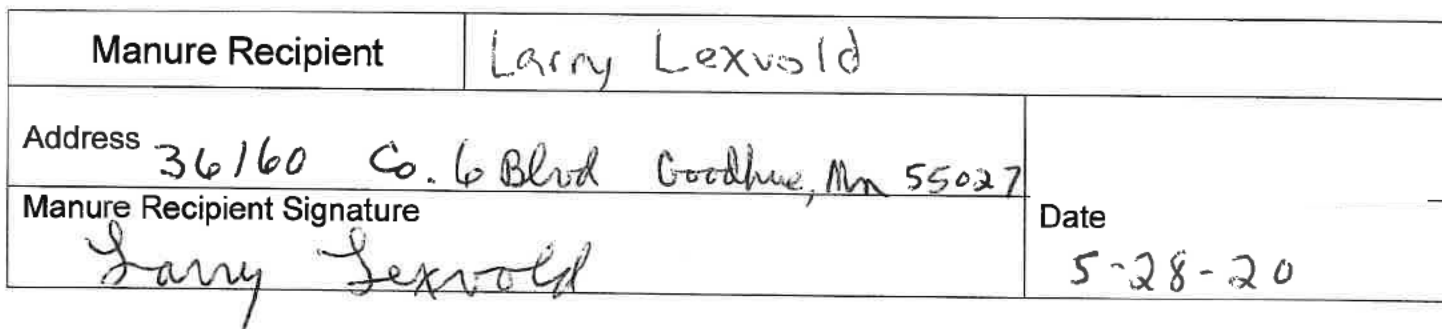 Manure Recipient Larry Lexvold
Address 36160 Co. 6 Blvd Goodhue, Mn 55027
Manure Recipient Signature Date
Larry Lexvold 5-28-20